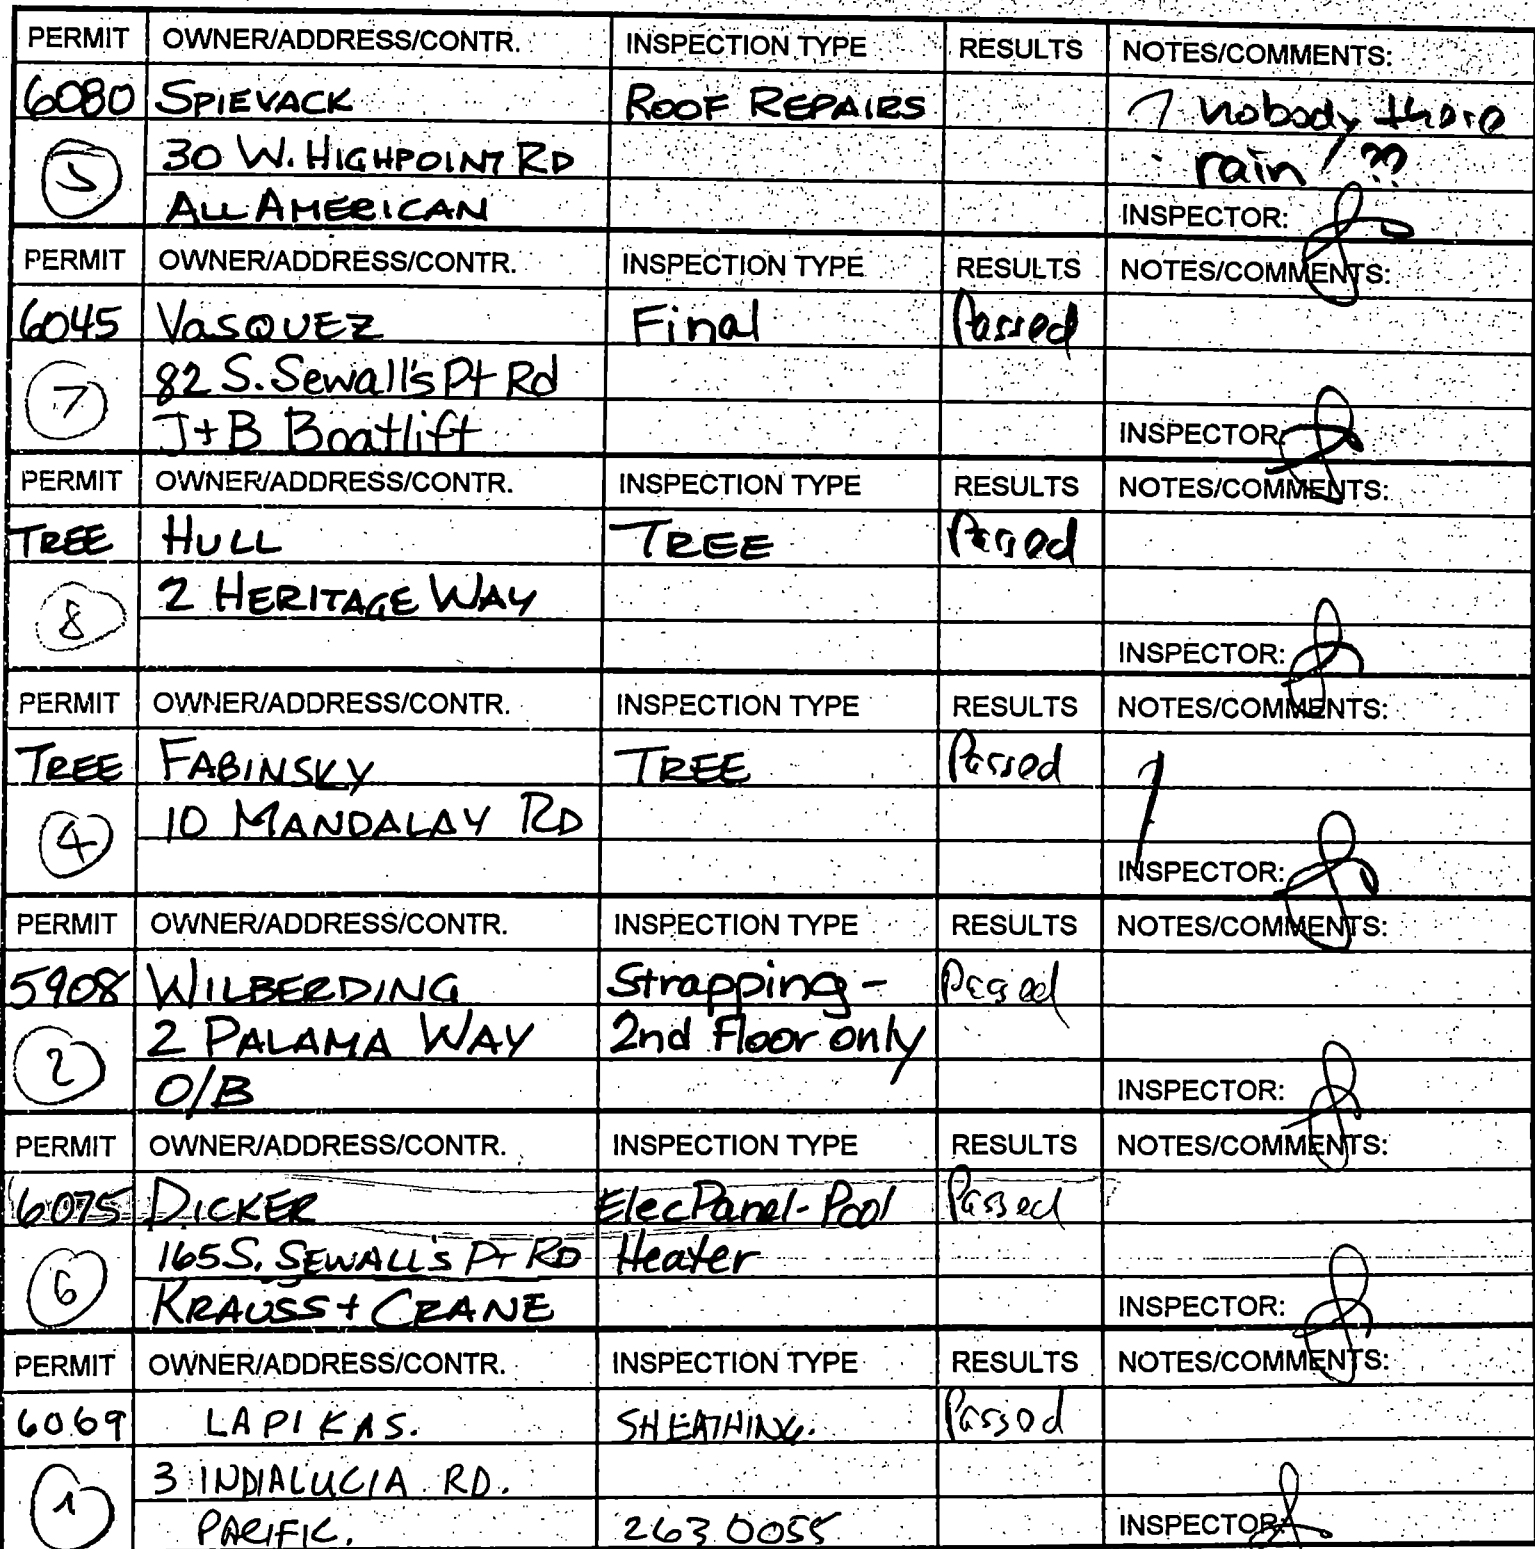 PERMIT OWNER/ADDRESS/CONTR. INSPECTION TYPE RESULTS NOTES/COMMENTS:
6080 SPIEVACK ROOF REPAIRS nobody there
5 30 W. HIGHPOINT RD rain! ??
ALL AMERICAN INSPECTOR:
PERMIT OWNER/ADDRESS/CONTR. INSPECTION TYPE RESULTS NOTES/COMMENTS:
6045 VASQUEZ Final Passed
7 82 S. Sewall's Pt Rd
J+B Boatlift INSPECTOR:
PERMIT OWNER/ADDRESS/CONTR. INSPECTION TYPE RESULTS NOTES/COMMENTS:
TREE HULL TREE Passed
8 2 HERITAGE WAY
INSPECTOR:
PERMIT OWNER/ADDRESS/CONTR. INSPECTION TYPE RESULTS NOTES/COMMENTS:
TREE FABINSKY TREE Passed
4 10 MANDALAY RD
INSPECTOR:
PERMIT OWNER/ADDRESS/CONTR. INSPECTION TYPE RESULTS NOTES/COMMENTS:
5908 WILBERDING Strapping - Passed
2 2 PALAMA WAY 2nd Floor only
O/B INSPECTOR:
PERMIT OWNER/ADDRESS/CONTR. INSPECTION TYPE RESULTS NOTES/COMMENTS:
6075 DICKER Elec Panel - Pool Passed
6 165 S. SEWALL'S PT RD Heater
KRAUSS + CRANE INSPECTOR:
PERMIT OWNER/ADDRESS/CONTR. INSPECTION TYPE RESULTS NOTES/COMMENTS:
6069 LAPIKAS. SHEATHING. Passed
1 3 INDIALUCIA RD.
PACIFIC. 263 0055 INSPECTOR: